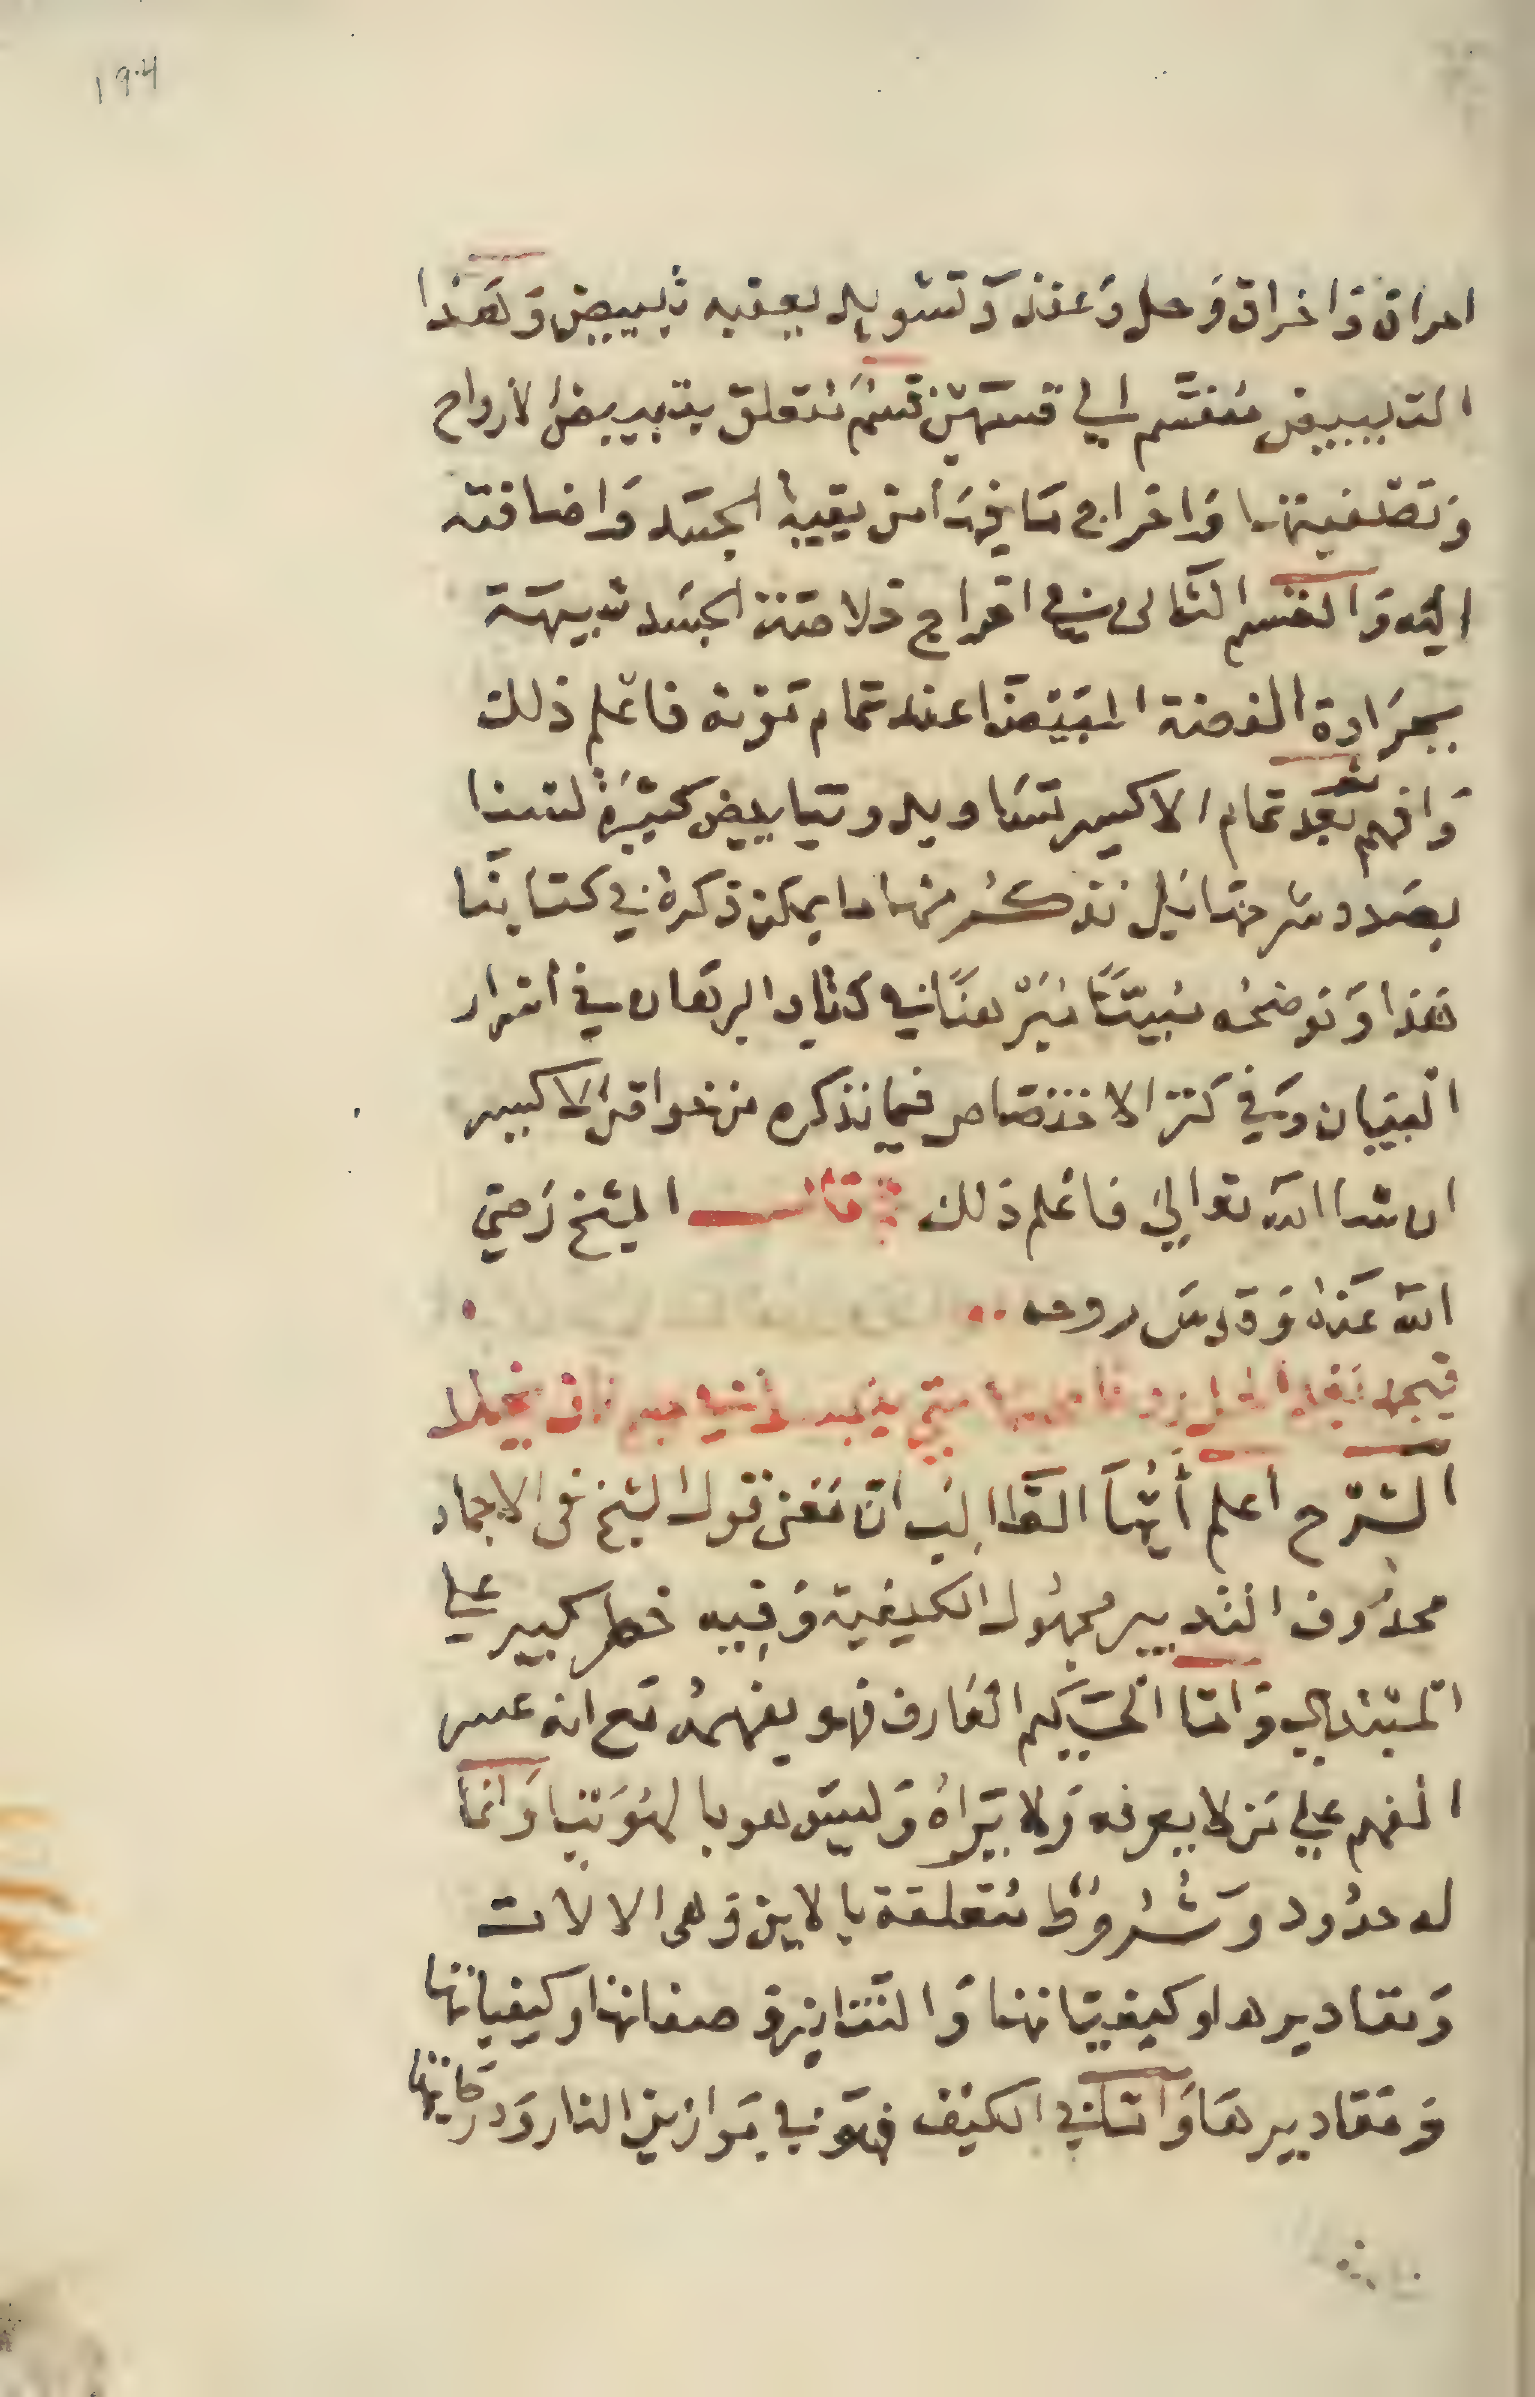 ١٩٤
احراق واخراق وحل وعقد وتسويد يعقبه تبييض وهذا
التبييض منقسم الي قسمين قسم يتعلق بتبييض الارواح
وتصفيتها واخراج ما فيها من بقية الجسد واضافته
اليه والقسم الثاني في اخراج خلاصة الجسد شبيهة
ببرادة الفضة المبيضة عند تمام كونه فاعلم ذلك
وافهم بعد تمام الاكسير تساويد وتبابيض كثيرة لسنا
بصدد شرحها بل نذكر منها ما يمكن ذكره في كتابنا
هذا ونوضحه مبينا مبرهنا في كتاب البرهان في اسرار
البيان وفي كنز الاختصاص فيما نذكره من خواص الاكسير
ان شا الله تعالي فاعلم ذلك قال الشيخ رضي
الله عنه وقدس روحه
الشرح اعلم أيها الطالب ان معني قول الشيخ في الاجماد
محذوف التدبير مجهول الكيفية وفيه خطر كبير علي
المبتدي واما الحكيم العارف فهو يفهمه مع انه عسر
الفهم علي من لا يعرفه ولا يراه وليس هو بالهوينا وانما
له حدود وشروط متعلقة بالاين وهي الالات
ومقاديرها وكيفياتها والتنانير وصفاتها وكيفياتها
ومقاديرها واما في الكيف فهو في موازين النار ودركاتها